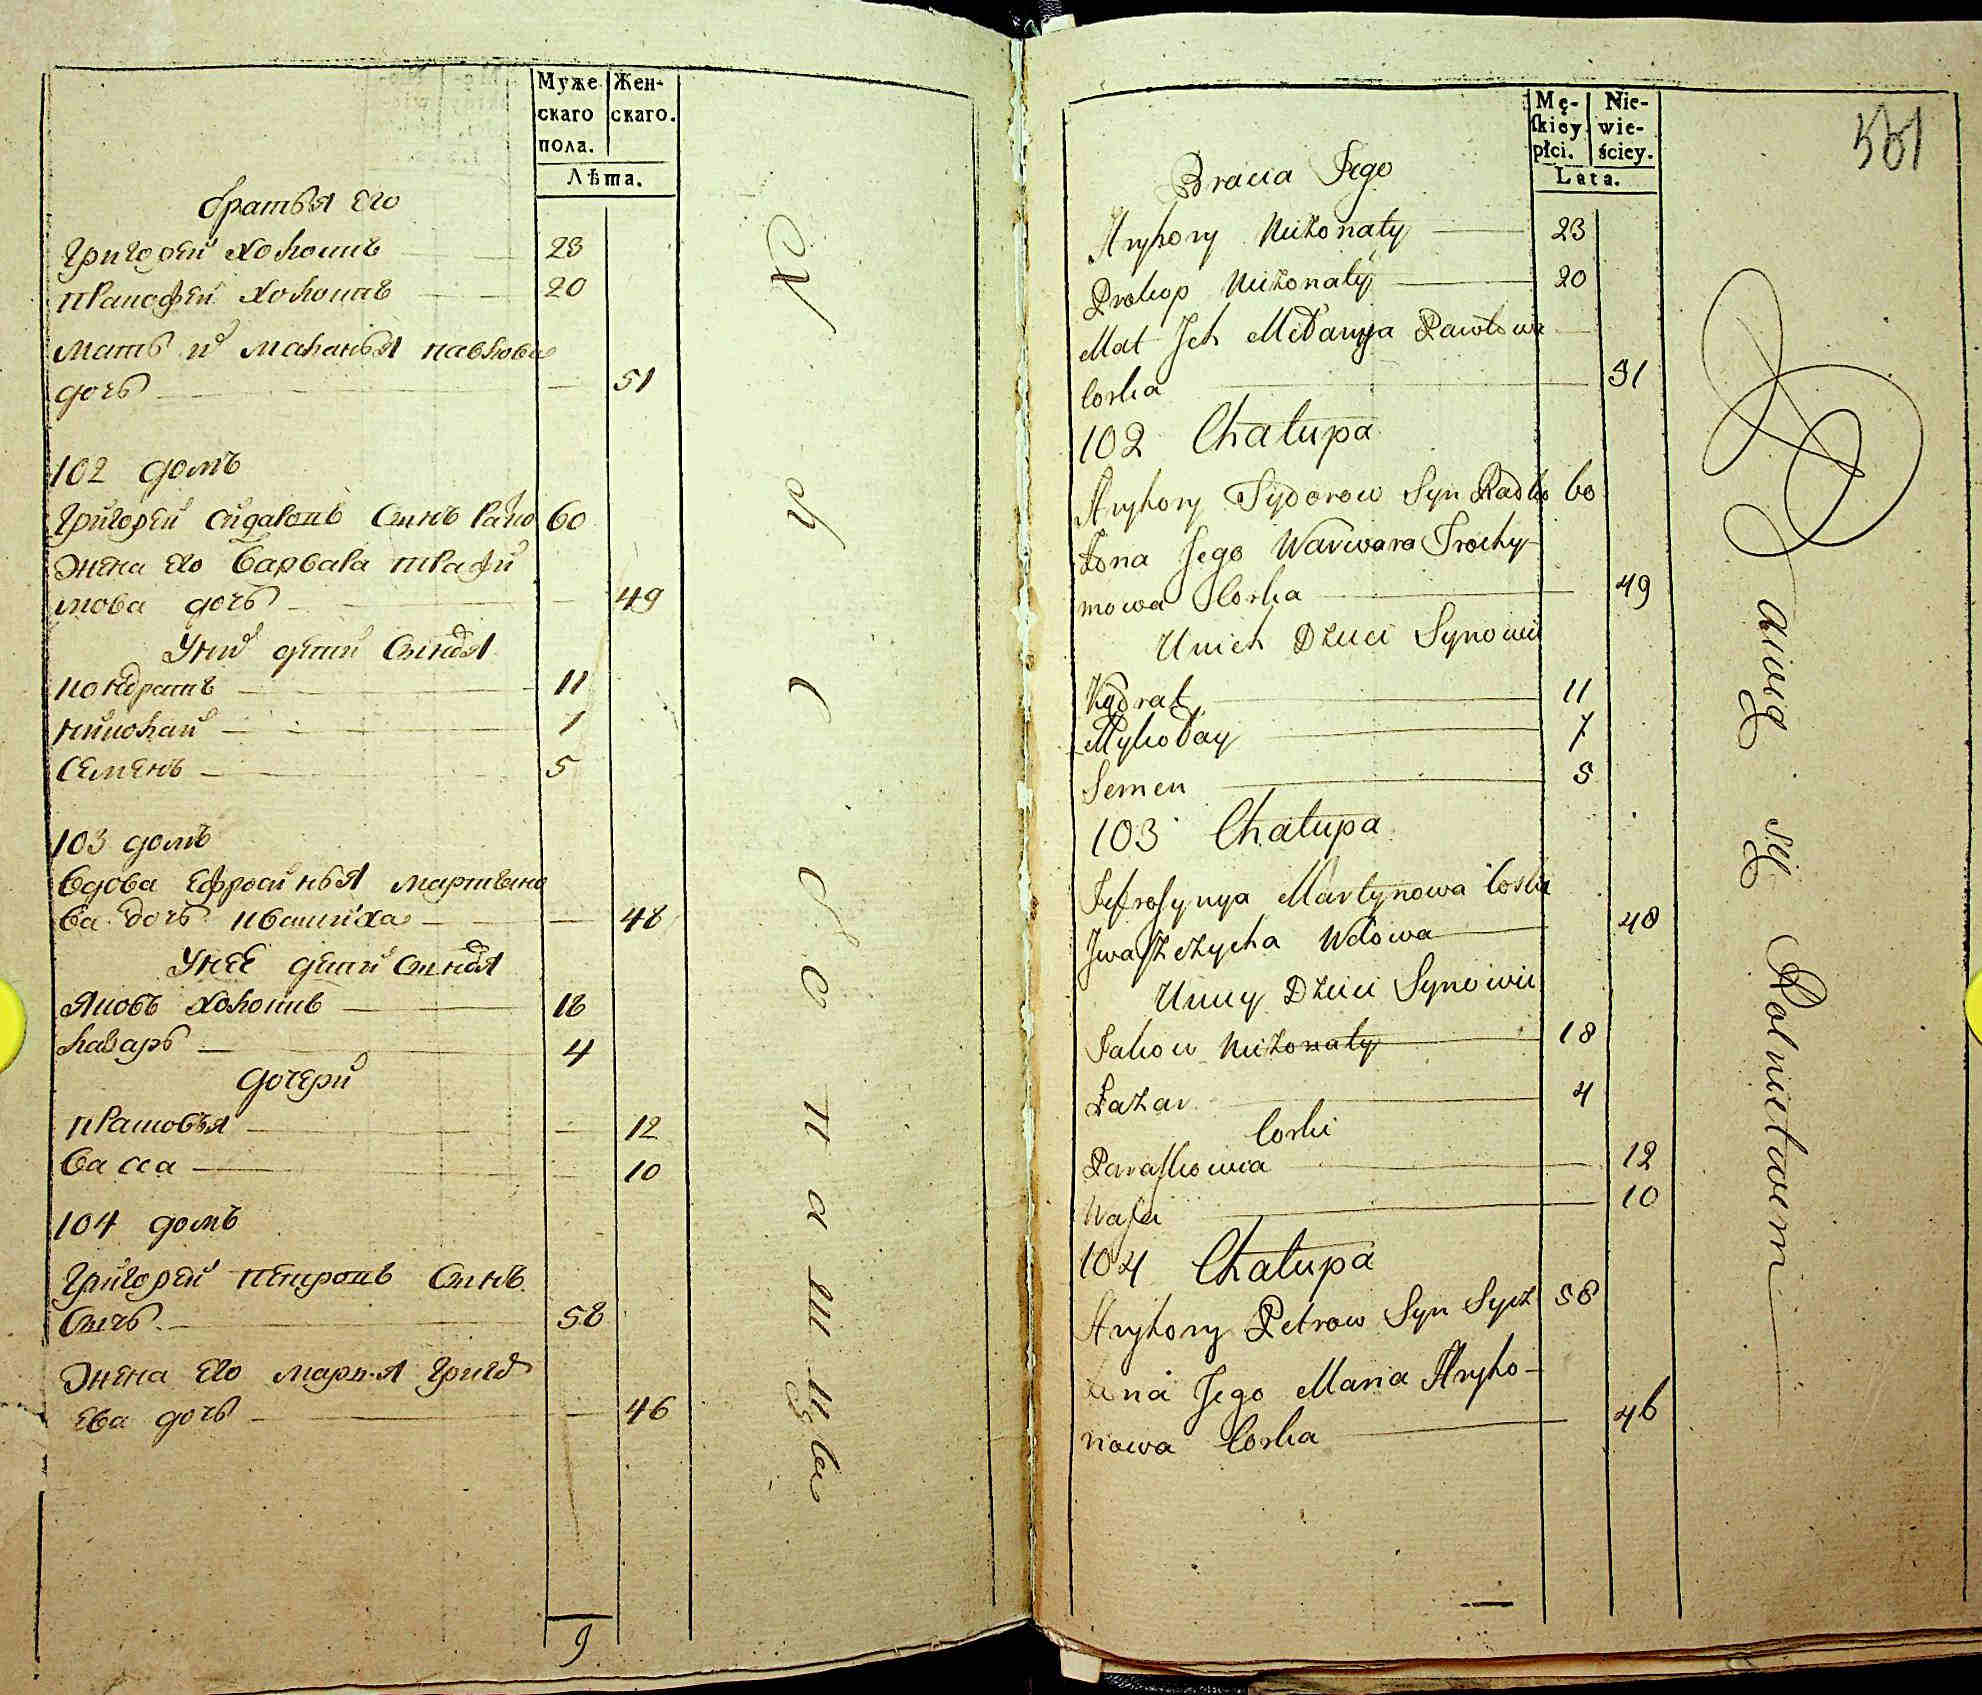 Муже
скаго
пола.
Жен-
скаго.
Лѣта.
братья его
Григорей холоитъ 23
холоитъ 20
мать и маланья павлова
дочь 51
102 домъ
Григорей сидаровъ сынъ 60
Жена его барбара трафи
мова дочь 49
Уних дети сыновья
кондратъ 11
николай 7
Семенъ 5
103 домъ
вдова ефросинья мартыно
ва дочь ивашиха 48
Унее дети сыновья
Яковъ холоитъ 18
лазарь 4
дочери
12
васса 10
104 домъ
Григорей петровъ сынъ
Сычъ 58
Жена его марья григо
ева дочь 46
9
Mę-
skiey
płci.
Nie-
wie-
ściey.
Lata.
501
Bracia Jego
Hryhory Nieżonaty 23
Prokop Nieżonaty 20
Mat Jch Mełanya Pawłowa
Corka 51
102 Chałupa
Hryhory Sydorow Syn Radko 60
Żona Jego Warwara Trochy-
mowa Corka 49
Unich Dzieci Synowie
Kądrat 11
Mykołay 7
Semen 5
103 Chałupa
Jefrosynya Martynowa Corka
Jwaszczycha Wdowa 48
Uniey Dzieci Synowie
Jakow Nieżonaty 18
Łazar 4
Corki
Paraskowia 12
Wasa 10
104 Chałupa
Hryhory Petrow Syn Sycz 58
Żona Jego Maria Hryho-
rowa Corka 46
się Rolnictwem